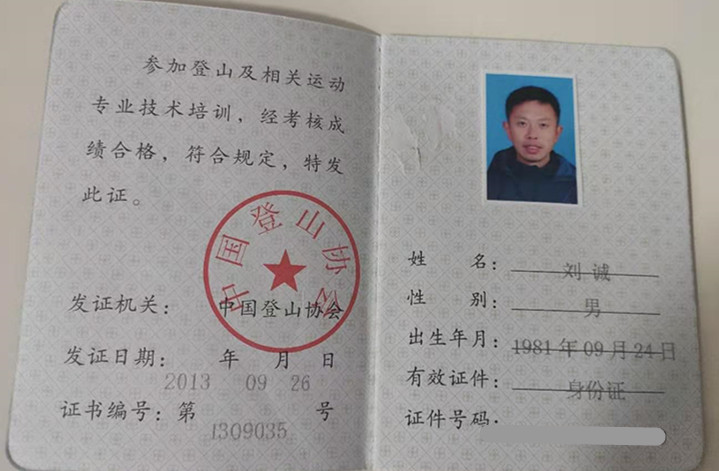 参加登山及相关运动
专业技术培训，经考核成
绩合格，符合规定，特发
此证。
中国登山协会
发证机关： 中国登山协会
发证日期： 年 月 日
2013 09 26
证书编号：第 号
1309035
姓 名： 刘诚
性 别： 男
出生年月：1981年09月24日
有效证件： 身份证
证件号码：